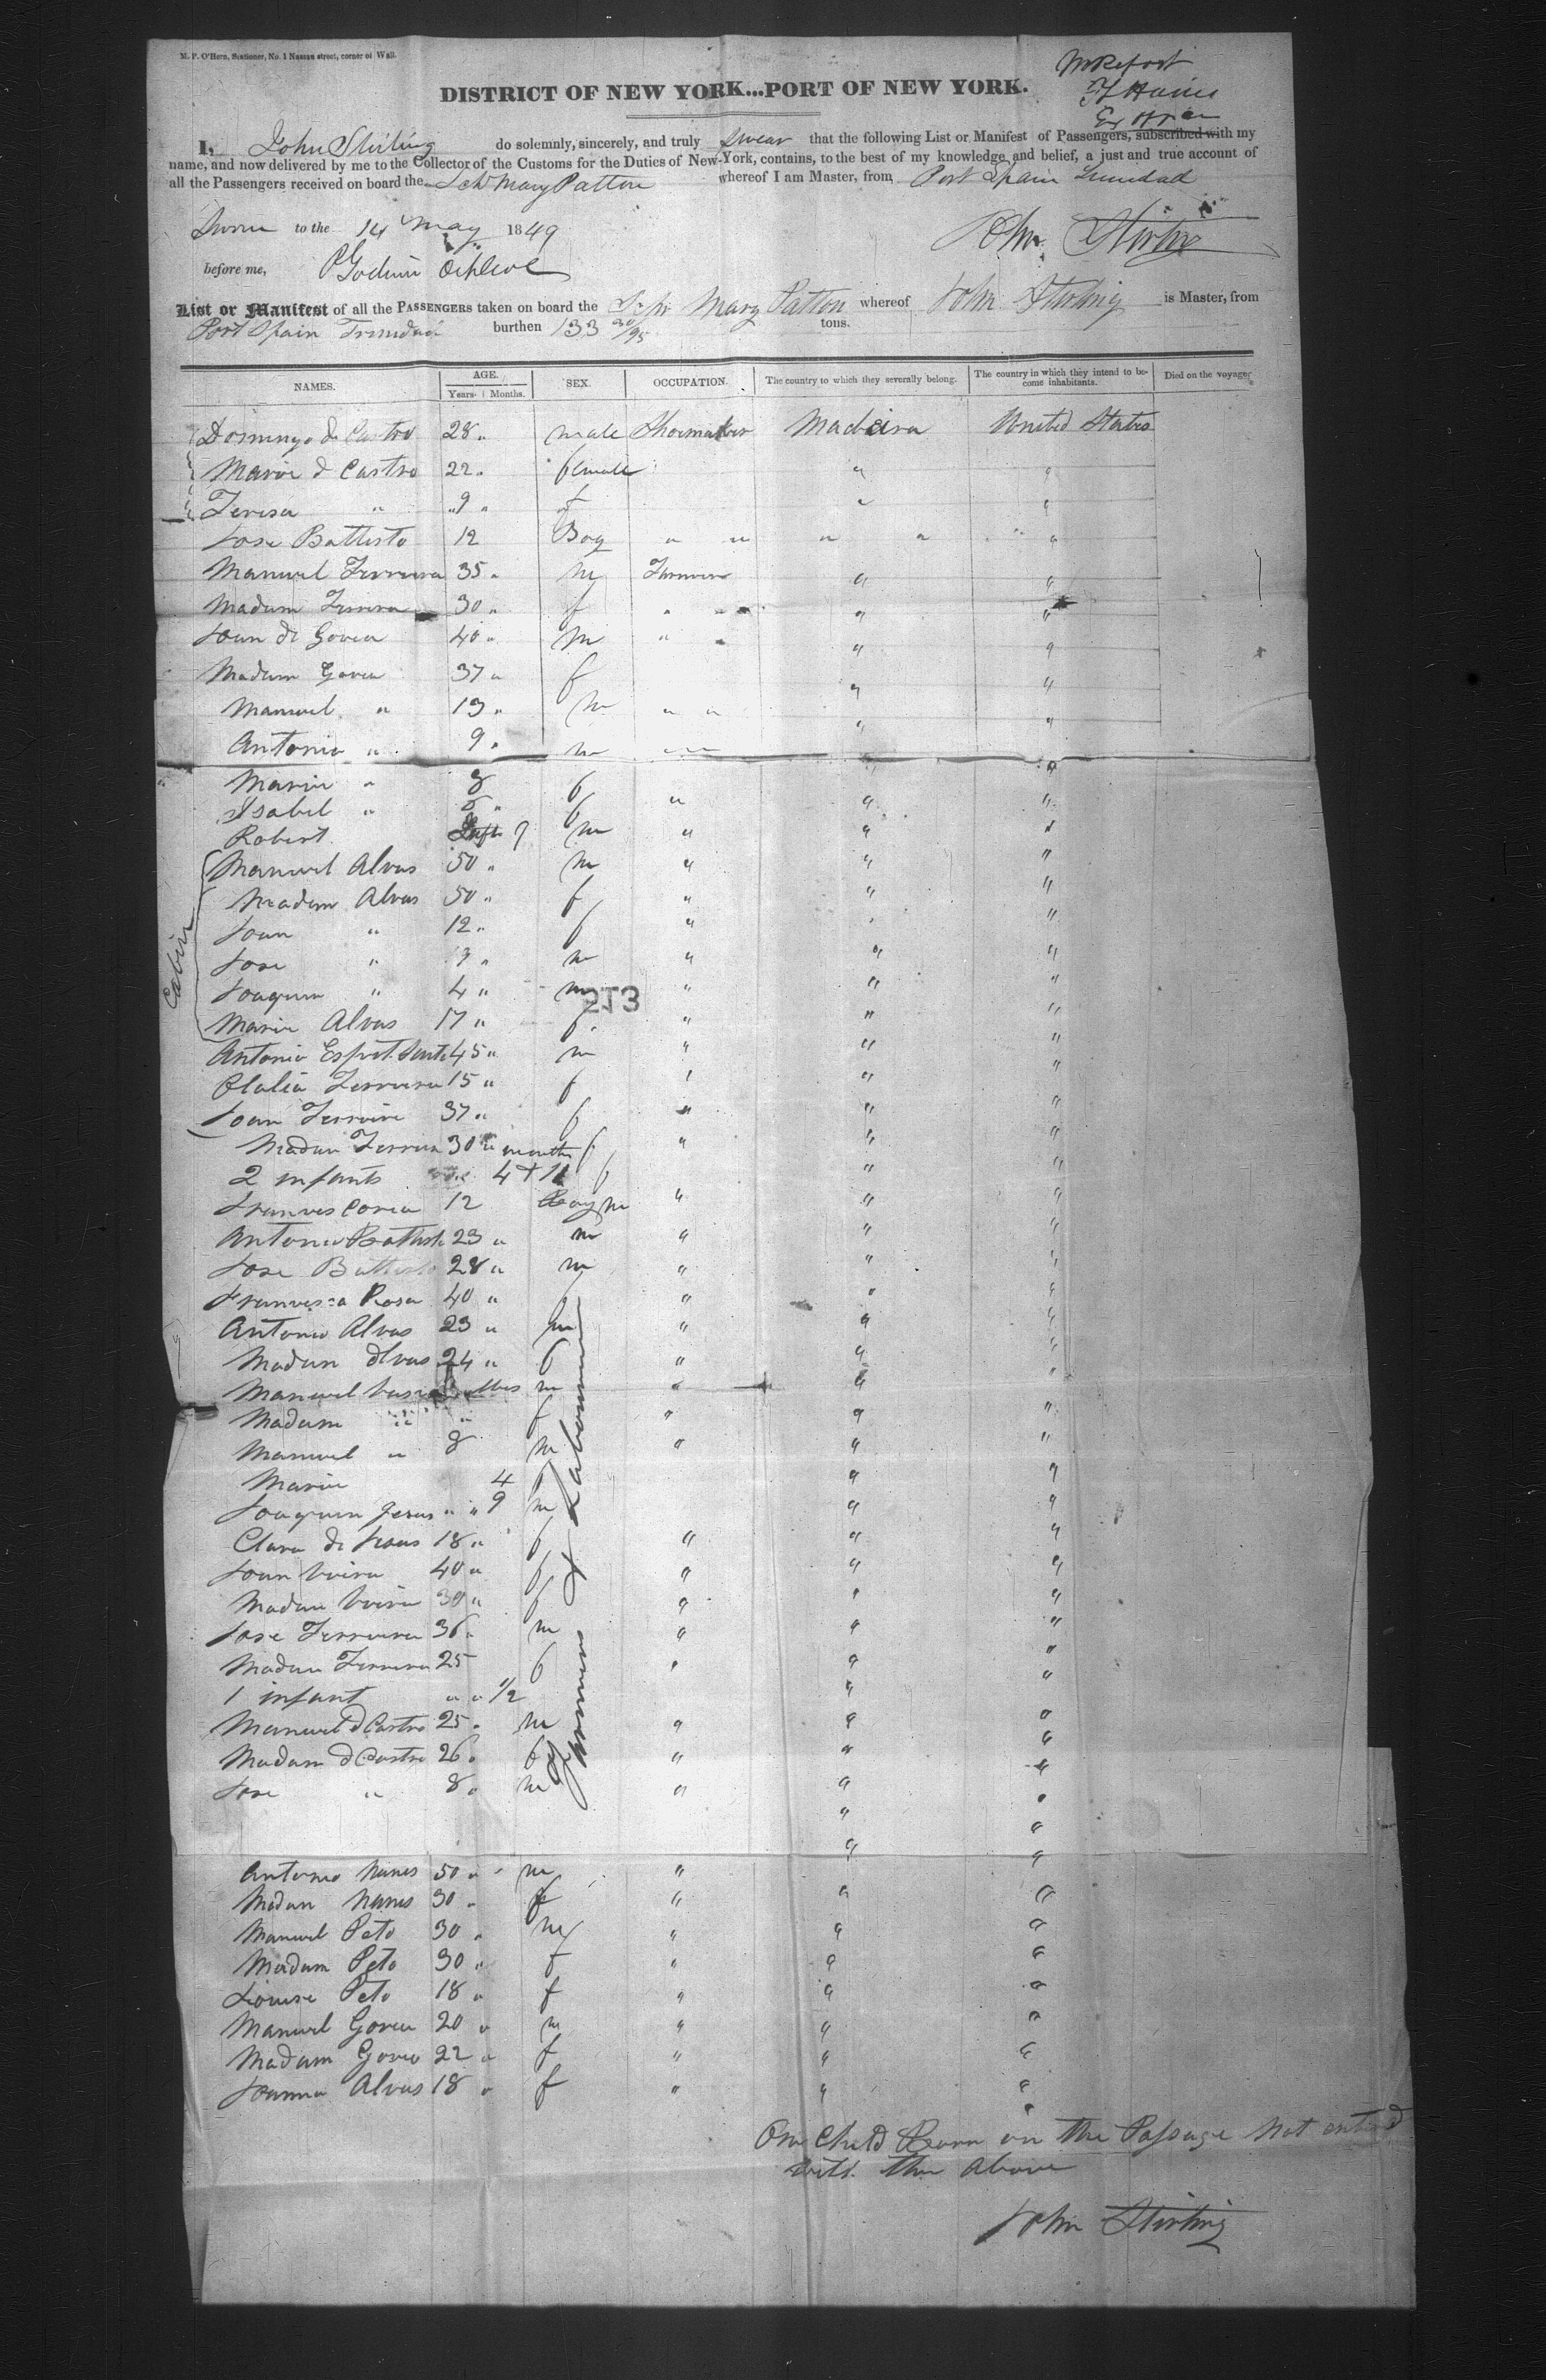 M. P. O'Hern, Stationer, No. 1 Nassau street, corner of Wall.
DISTRICT OF NEW YORK...PORT OF NEW YORK.
I, John Stirling do solemnly, sincerely, and truly swear that the following List or Manifest of Passengers, subscribed with my
name, and now delivered by me to the Collector of the Customs for the Duties of New-York, contains, to the best of my knowledge and belief, a just and true account of
all the Passengers received on board the Schr Mary Patton whereof I am Master, from Port Spain Trinidad
Sworn to the 14 May 1849
John Stirling
before me,
List or Manifest of all the PASSENGERS taken on board the Schr Mary Patton whereof John Stirling is Master, from
Port Spain Trinidad burthen 133 30/95 tons.
NAMES. AGE. Years. Months. SEX. OCCUPATION. The country to which they severally belong. The country in which they intend to become inhabitants. Died on the voyage.
Domingo de Castro 28 " male Shoemaker Madeira United States
Maria d Castro 22 " female " "
Teresa " " 9 " f " "
Jose Battisto 12 Boy " " " " "
Manuel Ferreira 35 " m Farmer " "
Madam Ferrera 30 " f " " " "
Joan de Govea 40 " m " " "
Madam Govea 37 " f " "
Manuel " 13 " m " " " "
Antonio " 9 " m " " "
Maria " 8 f " "
Isabel " 5 " f " " "
Robert 9 m " " "
Cabin
Manuel Alvas 50 " m " " "
Madam Alvas 50 " f " " "
Joan " 12 " f " " "
Jose " 9 " m " " "
Joaquim " 4 " m " " "
513
Maria Alvas 17 " f " " "
Antonio Esprt. Santo 45 " m " " "
Olalia Ferreira 15 " f " " "
Joan Ferreira 37 " f " " "
Madam Ferrera 30 " months f " " "
2 infants 4 + 11 f " "
Frances Corea 12 Boy m " " "
Antonio Battisto 23 " m " " "
Jose Battisto 28 " m " " "
Francisca Rosa 40 " f " " "
Antonio Alvas 23 " m " " "
Madam Alvas 24 " f " " "
Manuel m " " "
Madam " " f " " "
Manuel " 8 m " " "
Maria 4 f " "
Joaquim Jesus " " 9 m " "
Clara de 18 " f " " "
Joan Vieira 40 " f " " "
Madam Vieira 30 " f " " "
Jose Ferreira 36 " m " " "
Madam Ferrera 25 f " " "
1 infant " " 1/2 " "
Manuel d Castro 25 " m " " "
Madam d Castro 26 " f " " "
Jose " 8 " m " " "
Farmers & Labourers
Antonio Nunes 50 " m " " "
Madam Nunes 30 " f " " "
Manuel Peto 30 " m " " "
Madam Peto 30 " f " " "
Louise Peto 18 " f " " "
Manuel Govea 20 " m " " "
Madam Govea 22 " f " " "
Joanna Alvas 18 " f " " "
One Child Born on the Passage Not entered
with the above
John Stirling